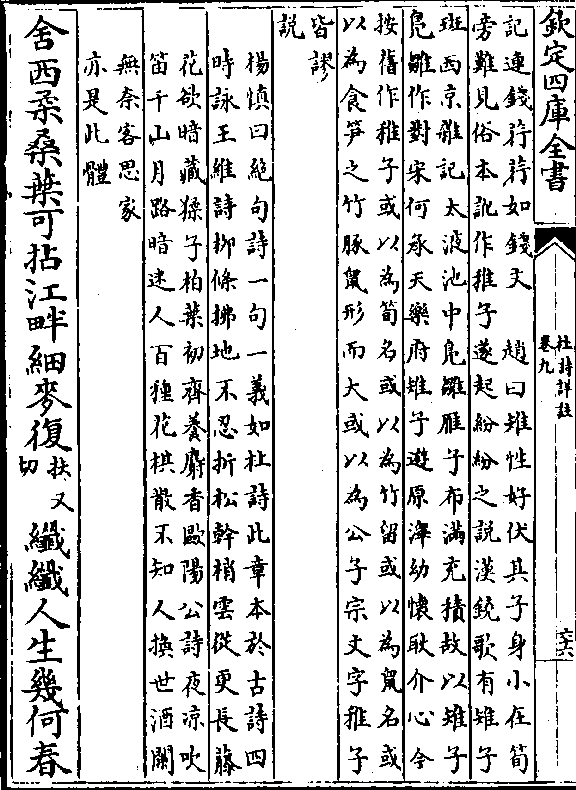 欽定四庫全書
杜詩詳註
卷九
六
記連錢荇荇如錢文　趙曰雉性好伏其子身小在筍
旁難見俗本訛作稚子遂起紛紛之説漢鐃歌有雉子
班西京雜記太液池中鳧雛雁子布滿充積故以雉子
鳧雛作對宋何承天樂府雉子遊原澤幼懷耿介心今
按舊作稚子或以為筍名或以為竹留或以為鼠名或
以為食笋之竹豚鼠形而大或以為公子宗文字稚子
皆謬
説
楊慎曰絶句詩一句一義如杜詩此章本於古詩四
時詠王維詩栁條拂地不忍折松幹梢雲從更長藤
花欲暗藏猱子柏葉初齊養麝香歐陽公詩夜凉吹
笛千山月路暗迷人百種花棋散不知人換世酒闌
無奈客思家
亦是此體
舍西柔桑葉可拈江畔細麥復扶又切纖纖人生幾何春